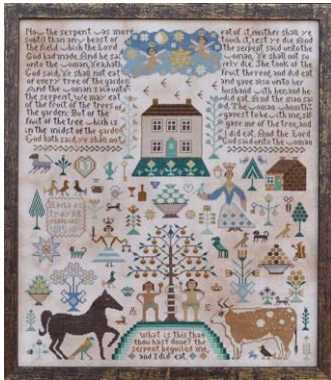 Now the serpent was more
subtil than any beast of
the field which the Lord
God had made. And he said
unto the woman, Yea hath
God said, Ye shall not eat
of every tree of the garden
And the woman said unto
the serpent, we may eat
of the fruit of the trees of
the garden: But of the
fruit of the tree which is
in the midst of the garde
God hath said, ye shall not
eat of it, neither shall ye
touch it, lest ye die And
the serpent said unto the
woman, Ye shall not su
rely die. She took of the
fruit thereof, and did eat
and gave also unto her
husband with her, and he
did eat. And the man sai
d, The woman whom thou
gavest to be with me, she
gave me of the tree, and
I did eat. And the Lord
God said unto the woman
What is this that
thou hast done? the
serpent beguiled me,
and I did eat.